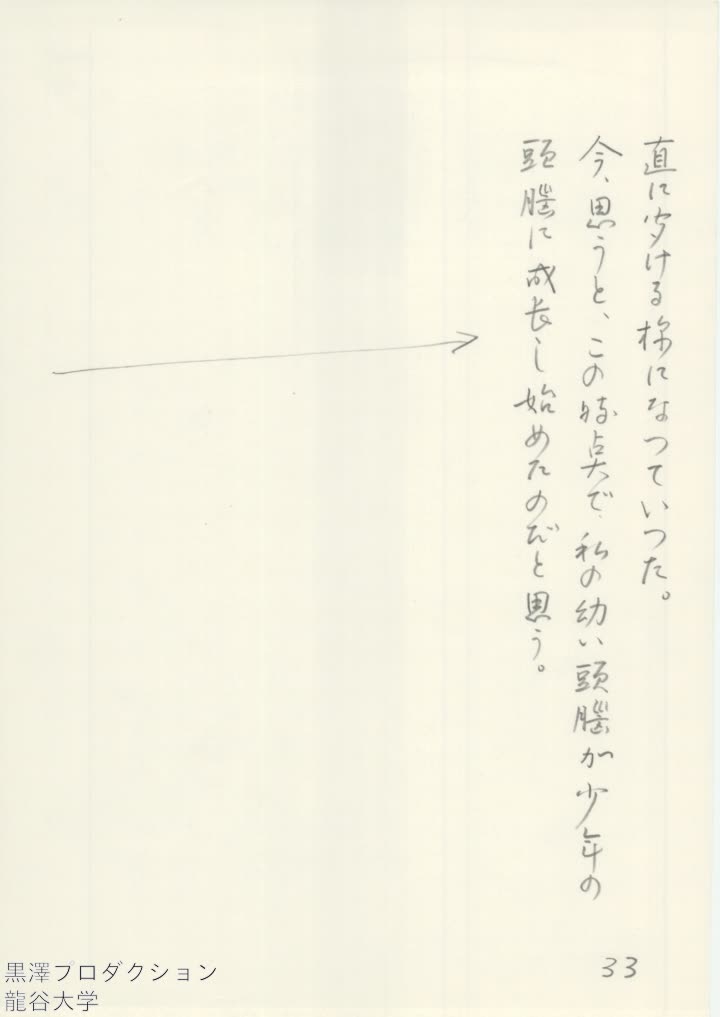 直に聞ける様になつていつた。
今、思うと、この時点で、私の幼い頭脳が少年の
頭脳に成長し始めたのだと思う。
33
黒澤プロダクション
龍谷大学